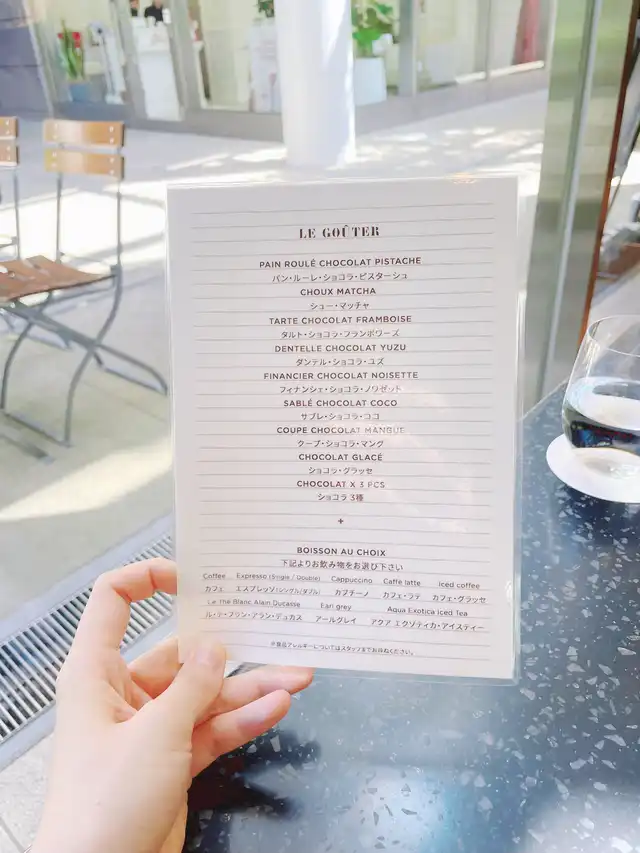 LE GOÛTER
PAIN ROULÉ CHOCOLAT PISTACHE
パン・ルーレ・ショコラ・ピスターシュ
CHOUX MATCHA
シュー・マッチャ
TARTE CHOCOLAT FRAMBOISE
タルト・ショコラ・フランボワーズ
DENTELLE CHOCOLAT YUZU
ダンテル・ショコラ・ユズ
FINANCIER CHOCOLAT NOISETTE
フィナンシェ・ショコラ・ノワゼット
SABLÉ CHOCOLAT COCO
サブレ・ショコラ・ココ
COUPE CHOCOLAT MANGUE
クープ・ショコラ・マング
CHOCOLAT GLACÉ
ショコラ・グラッセ
CHOCOLAT X 3 PCS
ショコラ 3種
+
BOISSON AU CHOIX
下記よりお飲み物をお選び下さい
Coffee Espresso (Single / Double) Cappuccino Caffe latte Iced coffee
カフェ エスプレッソ(シングル/ダブル) カプチーノ カフェ・ラテ カフェ・グラッセ
Le Thé Blanc Alain Ducasse Earl grey Aqua Exotica Iced Tea
ル・テ・ブラン・アラン・デュカス アールグレイ アクア エクゾティカ・アイスティー
※食品アレルギーについてはスタッフまでお尋ねください。